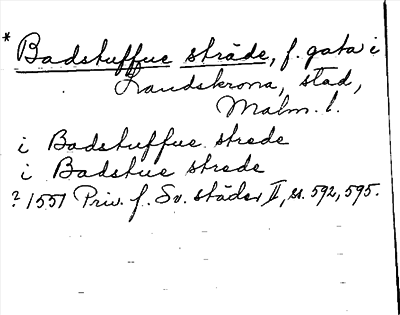 * Badstuffue sträde, f. gata i
Landskrona, stad,
Malm. l.
i Badstuffue strede
i Badstue strede
? 1551 Priv. f. Sv. städer II, s. 592, 595.